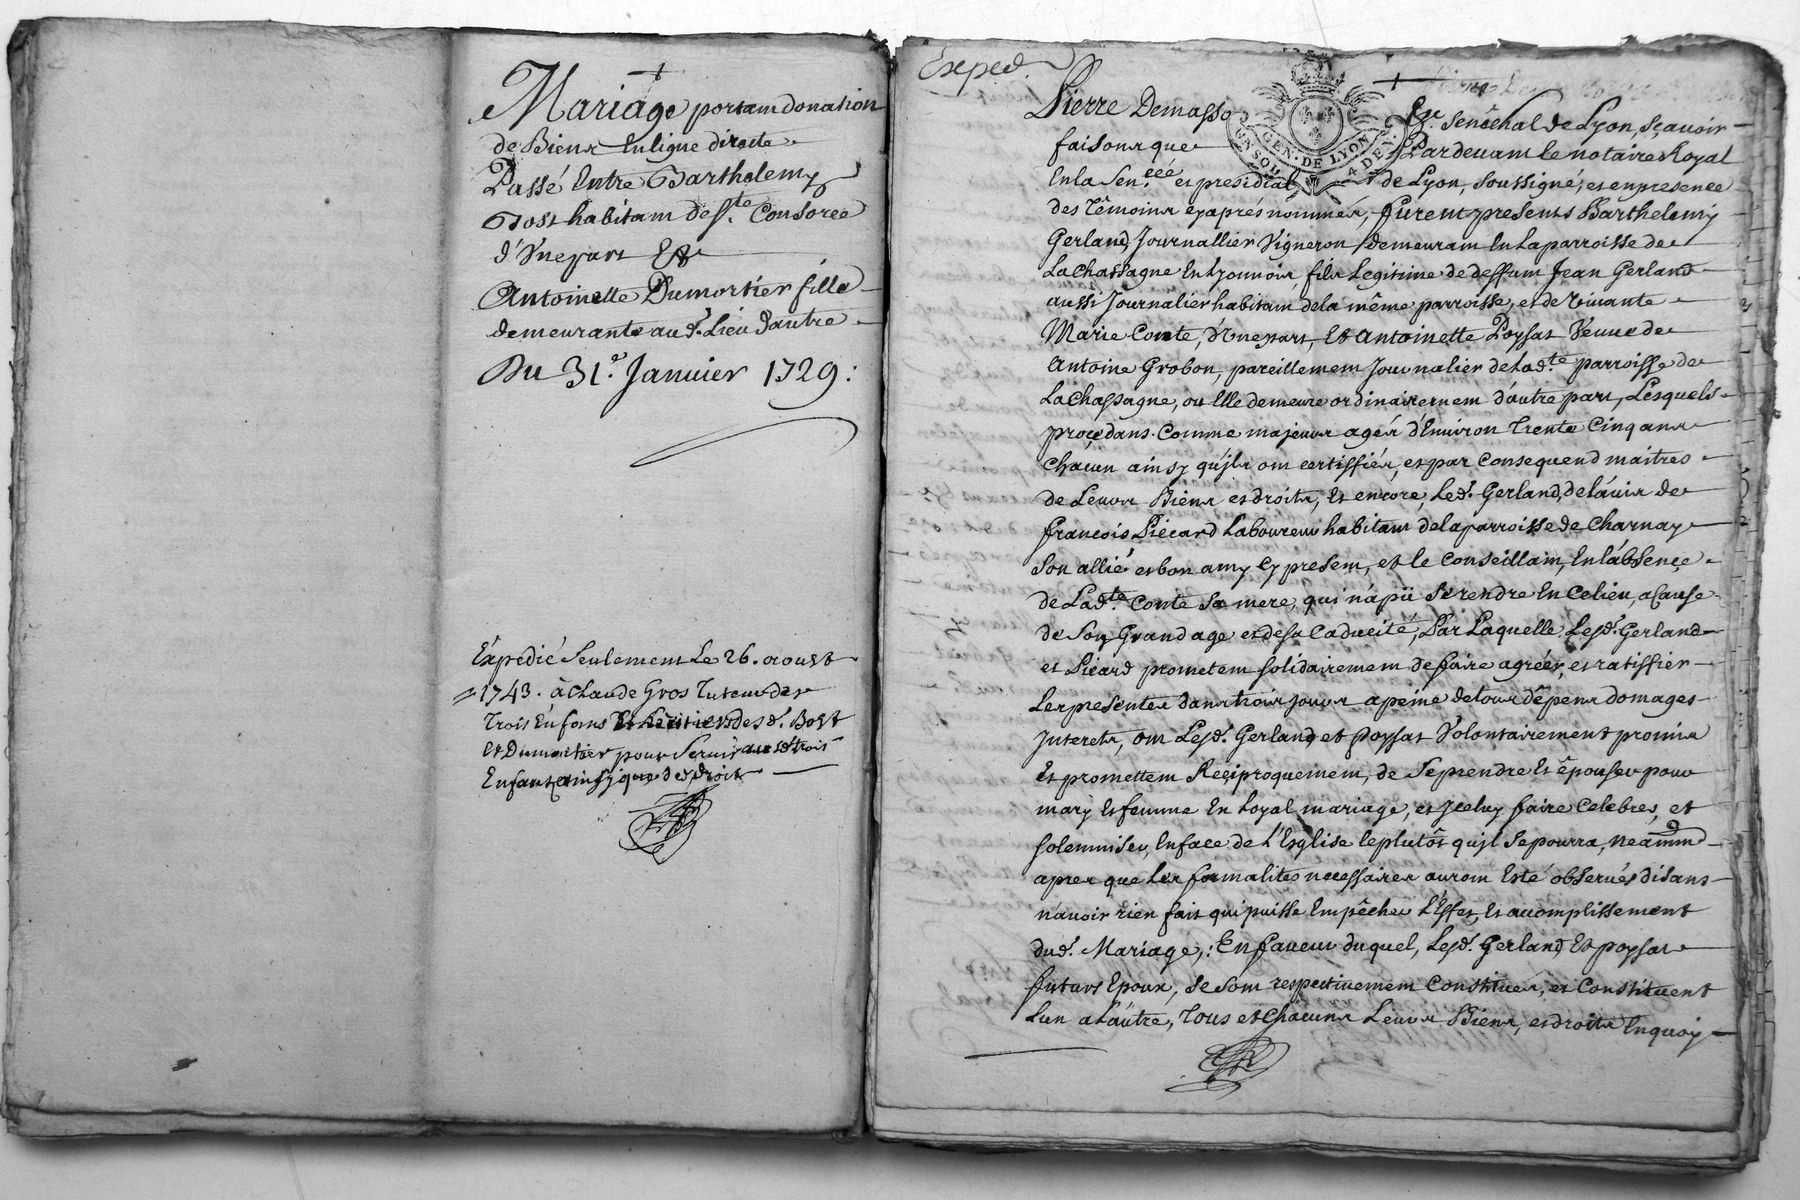 Mariage portant donation
de Biens En ligne directe
Passé Entre Barthelemy
Bost habitant de St. Consorce
d'Une part Et
Antoinette Dumortier fille
demeurante au d. Lieu d'autre
Du 31e. Janvier 1729:
Expedié Seulement Le 26. aoust
1743. à Claude Gros Tuteur des
Trois Enfans Et heritiers desd. Bost
Et Dumortier pour Servir aux d. trois
Enfants ainsy que de droit
Exped.
Pierre Demasso Sr. Senéchal de Lyon, Sçavoir
faisons que Pardevant le notaire Royal
En la Sen.ceé et presidial de Lyon, Soussigné, et en presence
des Témoins cy aprés nommés, furent presents Barthelemy
Gerland, Journallier Vigneron demeurant En La parroisse de
La Chassagne En Lyonnois, fils Legitime de deffunt Jean Gerland
aussi Journalier habitant de la même parroisse, et de vivante
Marie Conte, d'Une part, Et Antoinette Poysat Veuve de
Antoine Grobon, pareillement Journalier de Lad.te parroisse de
La Chassagne, ou Elle demeure ordinairement d'autre part, Lesquels
procedans Comme majeurs agés d'Environ Trente Cinq ans
chacun ainsy qu'ils ont certiffiés, et par consequend maitres
de Leurs Biens et droits, Et encore, Led. Gerland, de L'avis de
François Picard Laboureur habitant de la parroisse de Charnay
Son allié et bon amy Cy present, et le Conseillant, En l'absençe
de Lad.te Conte Sa mere, qui n'a pû Se rendre En Ce lieu, a Cause
de Son Grand age et de Sa Caducité, Par Laquelle Lesd. Gerland
et Picard prometent solidairement de faire agréer, et ratiffier
Les presentes dans trois jours a peine de tous dépens domages
Interets, ont Lesd. Gerland et Poysat Volontairement promis
Et promettent Reçiproquement, de Se prendre Et épouser pour
mary Et femme En Loyal mariage, et Jceluy faire Celebrer, et
solemniser, En face de L'Esglise le plutôt qu'jl Se pourra, neammd
apres que Les formalités necessaires auront Esté observés disans
n'avoir rien fait qui puisse Empêcher L'Effet, Et accomplissement
dud. Mariage,: En faveur duquel, Lesd. Gerland Et Poysat
futurs Epoux, Se Sont respectivement Constitués, et Constituent
L'un a L'autre, Tous et Chacuns Leurs Biens, et droits En quoy
GEN. DE LYON
4 DEN.